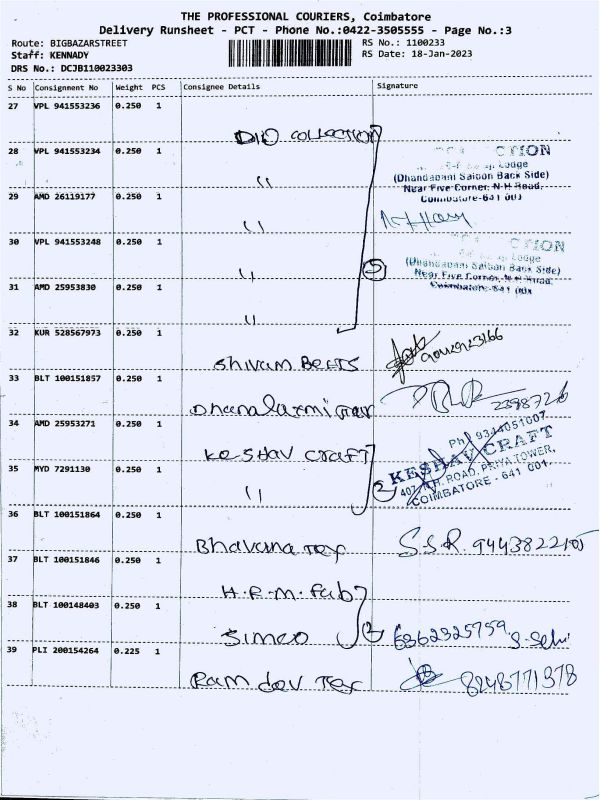 THE PROFESSIONAL COURIERS, Coimbatore
Delivery Runsheet - PCT - Phone No.:0422-3505555 - Page No.:3
Route: BIGBAZARSTREET RS No.: 1100233
Staff: KENNADY RS Date: 18-Jan-2023
DRS No.: DCJB110023303
S No Consignment No Weight PCS Consignee Details Signature
27 VPL 941553236 0.250 1
COLLECTION
28 VPL 941553234 0.250 1
CTION
Lodge
(Dhandapani Saloon Back Side)
Near Five Corner, N.H.Road,
Coimbatore-641 001
29 AMD 26119177 0.250 1
30 VPL 941553248 0.250 1
CTION
Lodge
(Dhandapani Saloon Back Side)
Near Five Corner, N.H.Road,
Coimbatore-641 001
31 AMD 25953830 0.250 1
5
32 KUR 528567973 0.250 1
Shivam Belts
33 BLT 100151857 0.250 1
Dhanalaxmi
34 AMD 25953271 0.250 1
Keshav Craft
Ph: 9344051007
KESHAV CRAFT
407, N.H. ROAD, PRIYA TOWER,
COIMBATORE - 641 001.
35 MYD 7291130 0.250 1
2
36 BLT 100151864 0.250 1
Bhavana Tex S.S.R.
37 BLT 100151846 0.250 1
H.R.M. Fab
38 BLT 100148403 0.250 1
Simco 2 6362325759
39 PLI 200154264 0.225 1
Ram dev Tex 8248771378